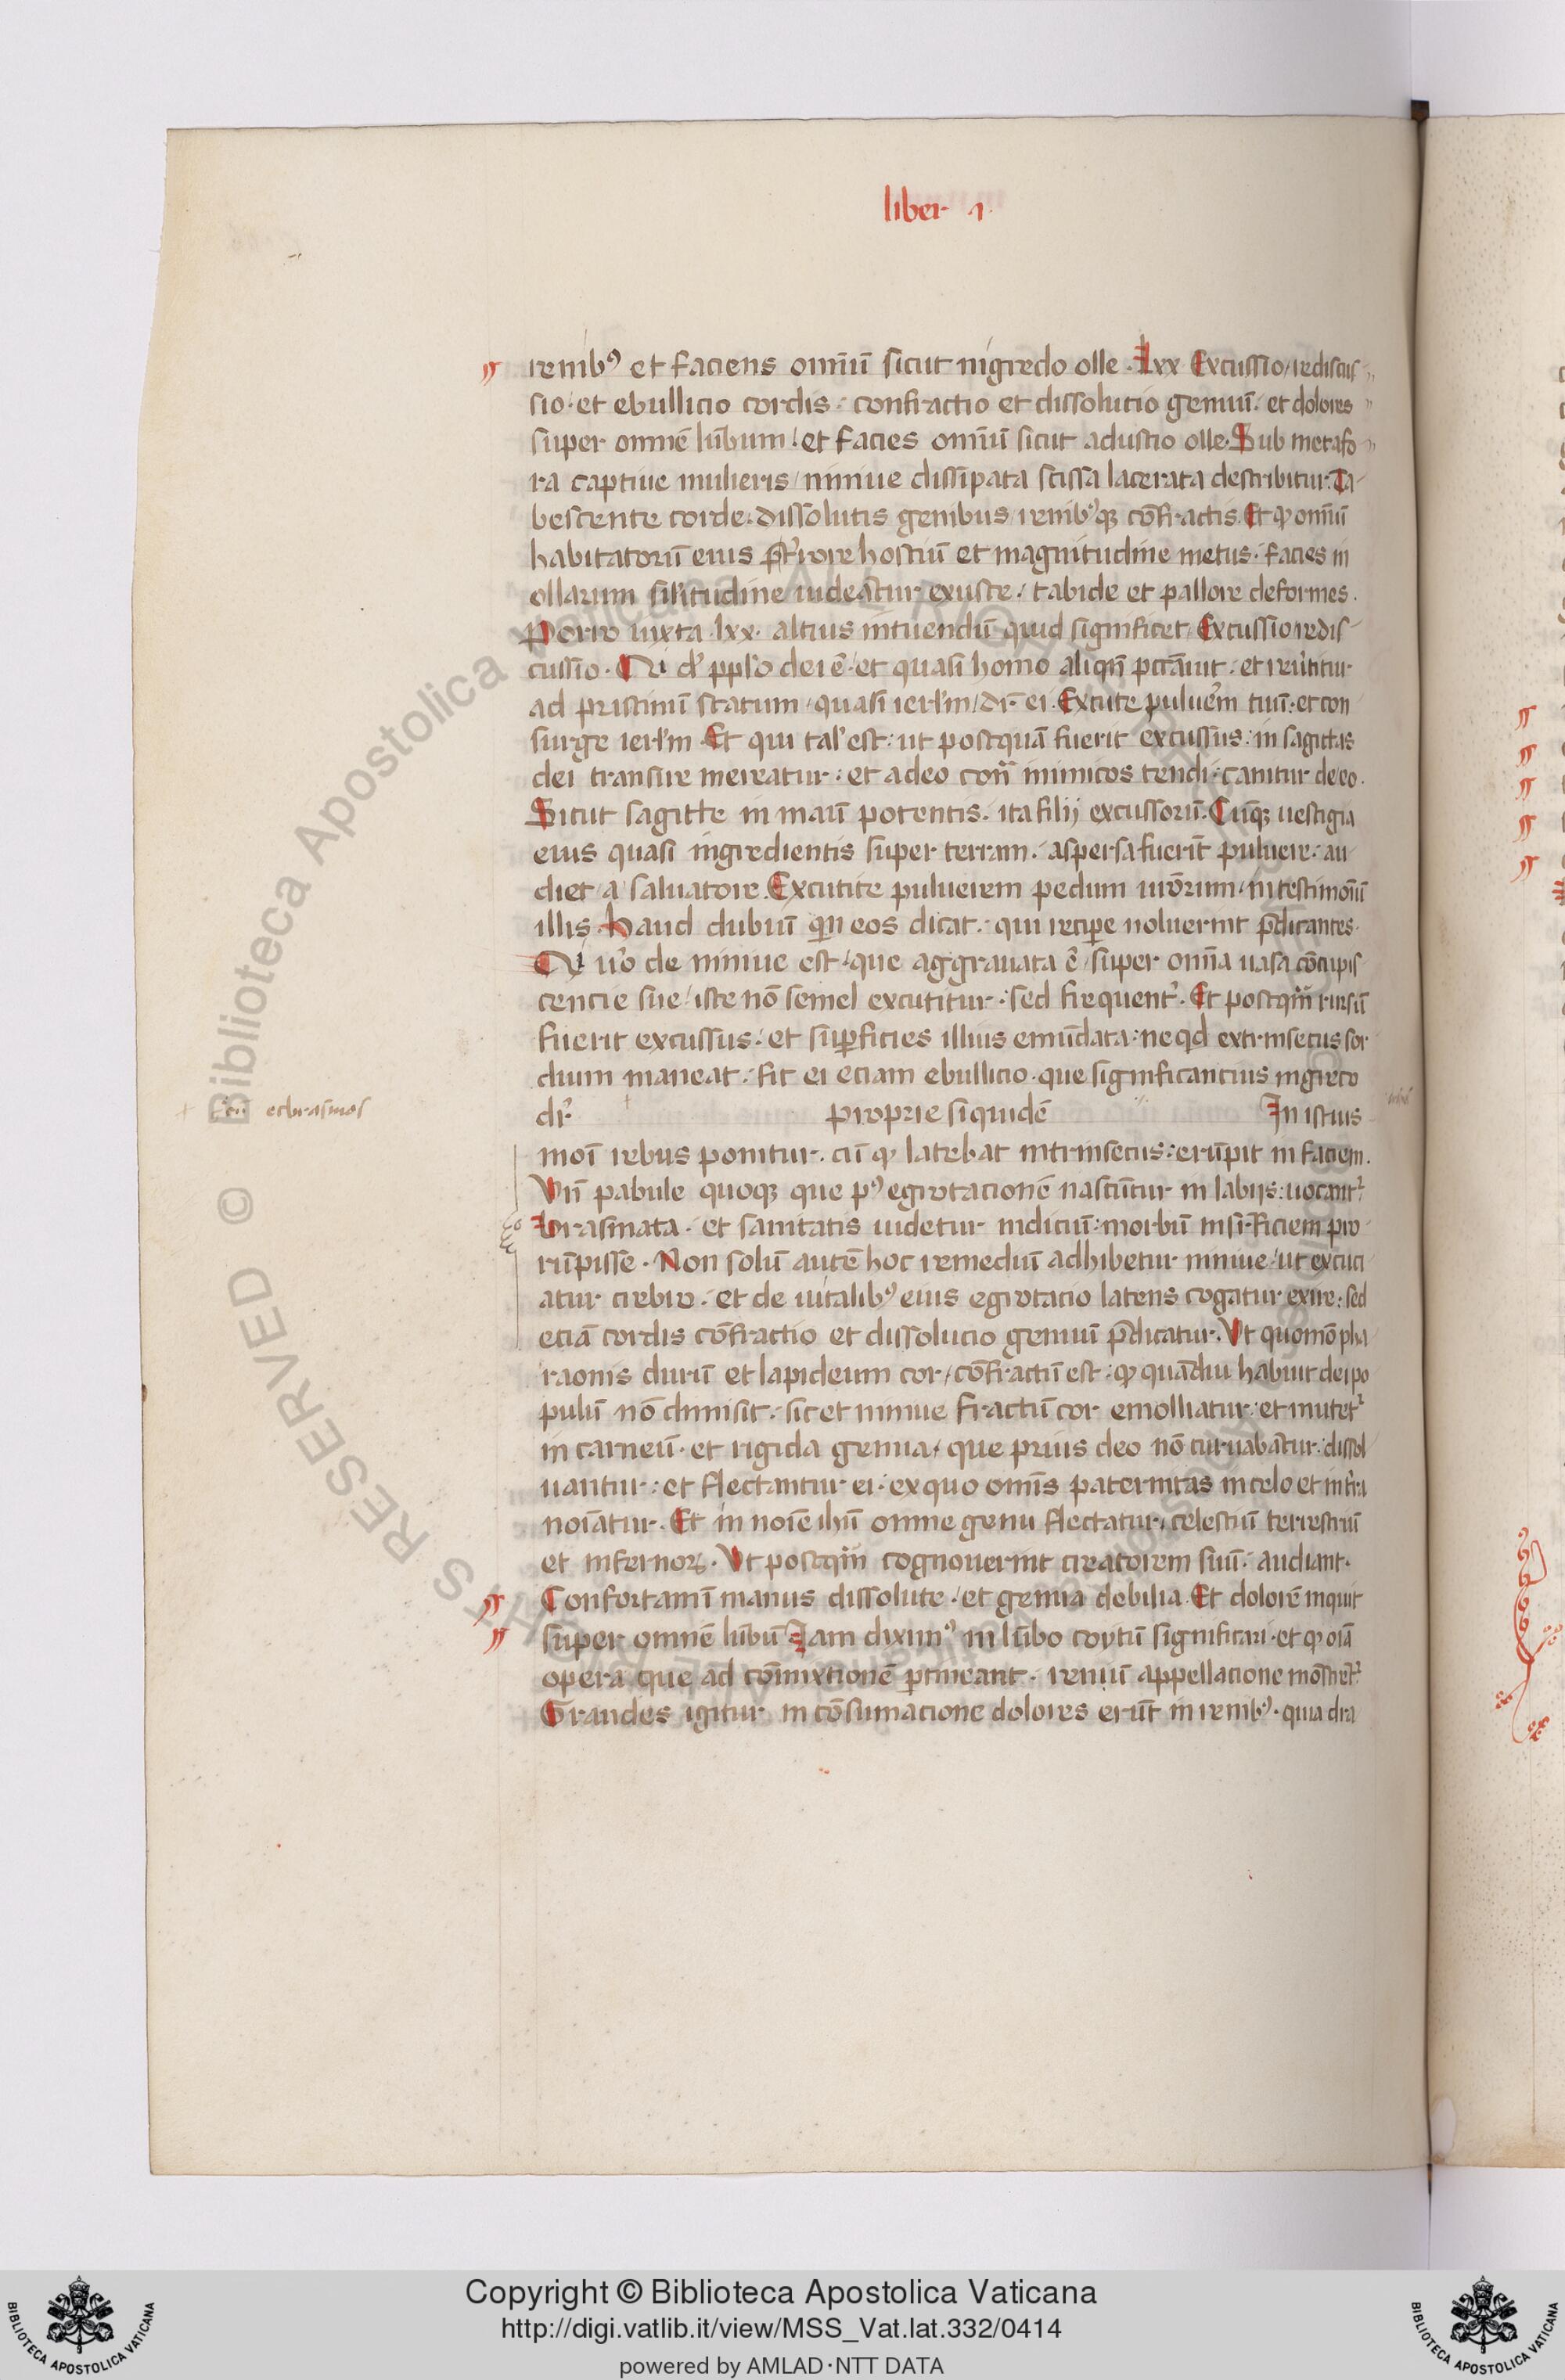 liber 1
renib⁹ et faciens om̄iū sicut nigredo olle. Lxx Excussio/rediscus
sio. et ebullicio cordis. confractio et dissolucio genuū. et dolores
super omnē lūbum. et facies om̄iū sicut adustio olle. Sub metafo
ra captiue mulieris/niniue dissipata scissa lacerata describitur. Ta
bescente corde. dissolutis genibus/renib⁹qꝫ cōfractis. Et ꝙ om̄iū
habitatorū eius hostiū et magnitudine metus. facies in
ollarum sil'itudine uideātur exuste. tabide et pallore deformes.
Porro iuxta lxx. altius intuendū quid significet Excussio redis
cussio. Qui dei ē. et quasi homo aliqn̄ et
ad pristinū statum/quasi ierl'm/dr̄ ei. Excute puluerm tuū. et con
surge ierl'm Et qui tal' est. ut postquā fuerit excussus. in sagittas
dei transire mereatur. et adeo inimicos tendi. canitur de eo.
Sicut sagitte in manū potentis. ita filij excussorū. Cuiqꝫ uestigia
eius quasi ingredientis super terram. aspersa fuerīt puluere. au
diet a saluatore. Excutite puluerem pedum ur̄orum/in testimoniū
illis. Haud dubiū qn̄ eos dicat. qui recipe noluerint p̄dicantes.
Qui u'o de niniue est/que aggrauata ē/super om̄ia uasa cōcupis
cencie sue/iste nō semel excutitur. sed frequent'. Et postqm̄ rursū
fuerit excussus. et suꝑficies illius emūdata. neqd extrinsecus sor
dium maneat. fit ei eciam ebullicio. que significantius in greco
dr̄. proprie siquidē In istius
ecbrasmos
mōi rebus ponitur. cū ꝙ latebat intrinsecus. erūpit in faciem.
Vn̄ pabule quoqꝫ que p⁹ egrotacionē nascūtur in labijs. uocant'
brasmata. et sanitatis uidetur indiciū. morbū in suꝑficiem pro
rūpisse. Non solū autē hoc remediū adhibetur niniue/ut excuci
atur crebro. et de uitalib⁹ eius egrotacio latens cogatur exire. sed
eciā cordis cōfractio et dissolucio genuū p̄dicatur. Vt quomō pha
raonis durū et lapideum cor/cōfractū est. ꝙ quādiu habuit dei po
pulū nō dimisit. sic et niniue fractū cor emolliatur. et mutet'
in carneū. et rigida genua/que prius deo nō curuabātur. dissol
uantur. et flectantur ei. ex quo omīs paternitas in celo et in t'ra
noīatur. Et in noīe ihū omne genu flectatur. celestiū terrestriū
et infernoꝝ. Vt postqm̄ cognouerint creatorem suū. audiant.
Confortamī manus dissolute. et genua debilia. Et dolorē inquit
super omnē lūbū Iam dixim⁹ in lūbo coytū significari. et ꝙ oīa
opera que ad cōmixtionē ꝑtineant. renū appellacione mōstret'.
Grandes igitur in cōsumacione dolores erūt in renib⁹. quia dra
Copyright © Biblioteca Apostolica Vaticana
http://digi.vatlib.it/view/MSS_Vat.lat.332/0414
powered by AMLAD·NTT DATA
BIBLIOTECA APOSTOLICA VATICANA
BIBLIOTECA APOSTOLICA VATICANA